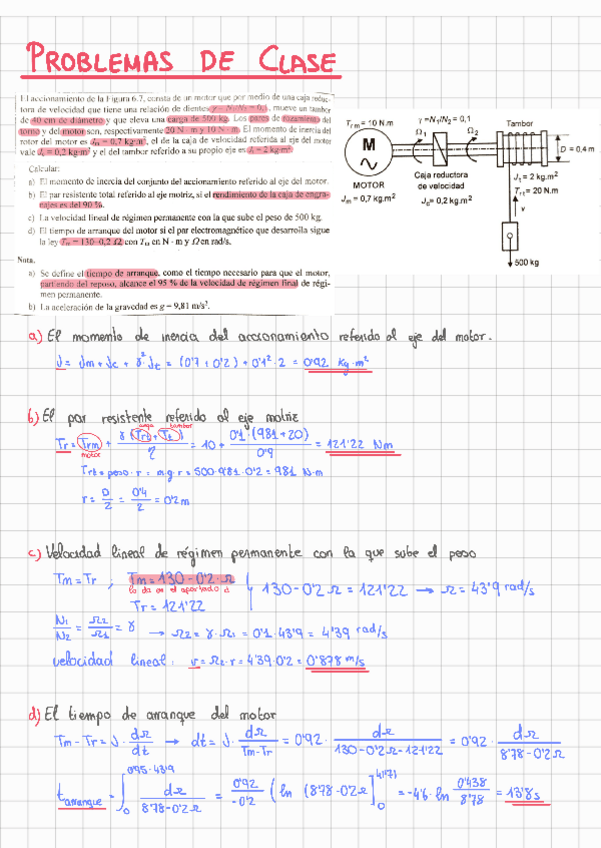 PROBLEMAS DE CLASE
El accionamiento de la Figura 6.7, consta de un motor que por medio de una caja reduc-
tora de velocidad que tiene una relación de dientes γ = N₁/N₂ = 0,1, mueve un tambor
de 40 cm de diámetro y que eleva una carga de 500 kg. Los pares de rozamiento del
torno y del motor son, respectivamente 20 N·m y 10 N·m. El momento de inercia del
rotor del motor es Jm = 0,7 kg·m², el de la caja de velocidad referida al eje del motor
vale Jc = 0,2 kg·m² y el del tambor referido a su propio eje es Jt = 2 kg·m².
Calcular:
a) El momento de inercia del conjunto del accionamiento referido al eje del motor.
b) El par resistente total referido al eje motriz, si el rendimiento de la caja de engra-
najes es del 90 %.
c) La velocidad lineal de régimen permanente con la que sube el peso de 500 kg.
d) El tiempo de arranque del motor si el par electromagnético que desarrolla sigue
la ley Tm = 130–0,2 Ω con Tm en N·m y Ω en rad/s.
Nota.
a) Se define el tiempo de arranque, como el tiempo necesario para que el motor,
partiendo del reposo, alcance el 95 % de la velocidad de régimen final de régi-
men permanente.
b) La aceleración de la gravedad es g = 9,81 m/s².
Trm = 10 N.m
γ =N₁/N₂ = 0,1
Tambor
Ω₁
Ω₂
M
D = 0,4 m
MOTOR
Jm = 0,7 kg.m²
Caja reductora
de velocidad
Jc= 0,2 kg.m²
Jt = 2 kg.m²
Trt = 20 N.m
v
500 kg
a) El momento de inercia del accionamiento referido al eje del motor.
J = Jm + Jc + γ²·Jt = (0'7 + 0'2) + 0'1²·2 = 0'92 kg·m²
b) El par resistente referido al eje motriz
carga tambor
Tr = Trm + γ(Trt + Tt)/η = 10 + 0'1·(981+20)/0'9 = 121'22 Nm
motor
Trt = peso·r = m·g·r = 500·9'81·0'2 = 981 N·m
r = D/2 = 0'4/2 = 0'2m
c) Velocidad lineal de régimen permanente con la que sube el peso
Tm = Tr ; Tm = 130 - 0'2·Ω
lo da en el apartado d
Tr = 121'22
130 - 0'2 Ω = 121'22 → Ω = 43'9 rad/s
N₁/N₂ = Ω₂/Ω₁ = γ → Ω₂ = γ·Ω₁ = 0'1·43'9 = 4'39 rad/s
velocidad lineal: v = Ω₂·r = 4'39·0'2 = 0'878 m/s
d) El tiempo de arranque del motor
Tm - Tr = J·dΩ/dt → dt = J·dΩ/(Tm-Tr) = 0'92·dΩ/(130-0'2Ω-121'22) = 0'92·dΩ/(8'78-0'2Ω)
t arranque = ∫₀^0'95·43'9 dΩ/(8'78-0'2Ω) = 0'92/-0'2 [ln (8'78-0'2Ω)]₀^41'71 = -4'6·ln 0'438/8'78 = 13'8s